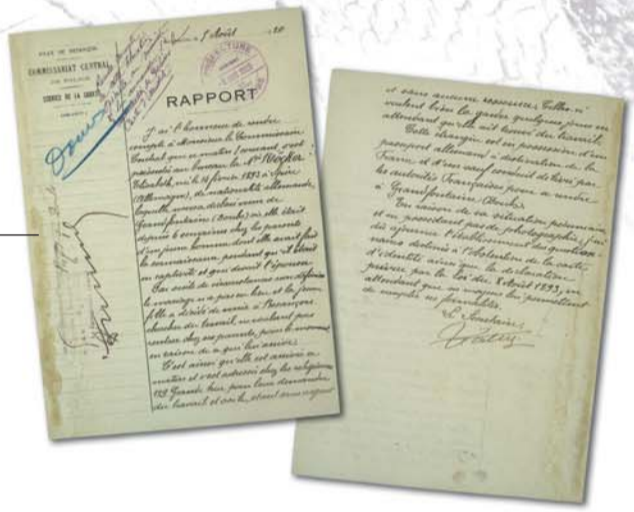 VILLE DE BESANÇON
COMMISSARIAT CENTRAL
DE POLICE
SERVICE DE LA SURETÉ
5 Août
PRÉFECTURE
RAPPORT
J'ai l'honneur de rendre
compte à Monsieur le Commissaire
Central que ce matin s'est
présentée au bureau la Née
Elisabeth, née le 16 février 1893 à Spire
(Allemagne), de nationalité allemande,
laquelle nous a déclaré venir de
Grandfontaine (Doubs) où elle était
depuis 6 semaines chez les parents
d'un jeune homme dont elle avait fait
la connaissance pendant qu'il était
en captivité et qui devait l'épouser.
Par suite de circonstances non définies
le mariage n'a pas eu lieu et la jeune
fille a décidé de venir à Besançon
chercher du travail, ne voulant pas
rentrer chez ses parents, pour le moment
en raison de ce qui lui arrive.
C'est ainsi qu'elle est arrivée ce
matin et s'est adressée chez les religieuses
Grande Rue pour leur demander
du travail et étant sans argent
et sans aucune ressource. Celles-ci
veulent bien la garder quelques jours en
attendant qu'elle ait trouvé du travail.
Cette étrangère est en possession d'un
passeport allemand à destination de la
France et d'un sauf conduit délivré par
les autorités Françaises pour se rendre
à Grandfontaine (Doubs).
En raison de sa situation pécuniaire
et ne possédant pas de photographie, j'ai
dû ajourner l'établissement des question-
naires destinés à l'obtention de la carte
d'identité ainsi que la déclaration
prévue par la loi du 8 Août 1893, en
attendant que ses moyens lui permettent
de remplir ces formalités.
Le Secrétaire